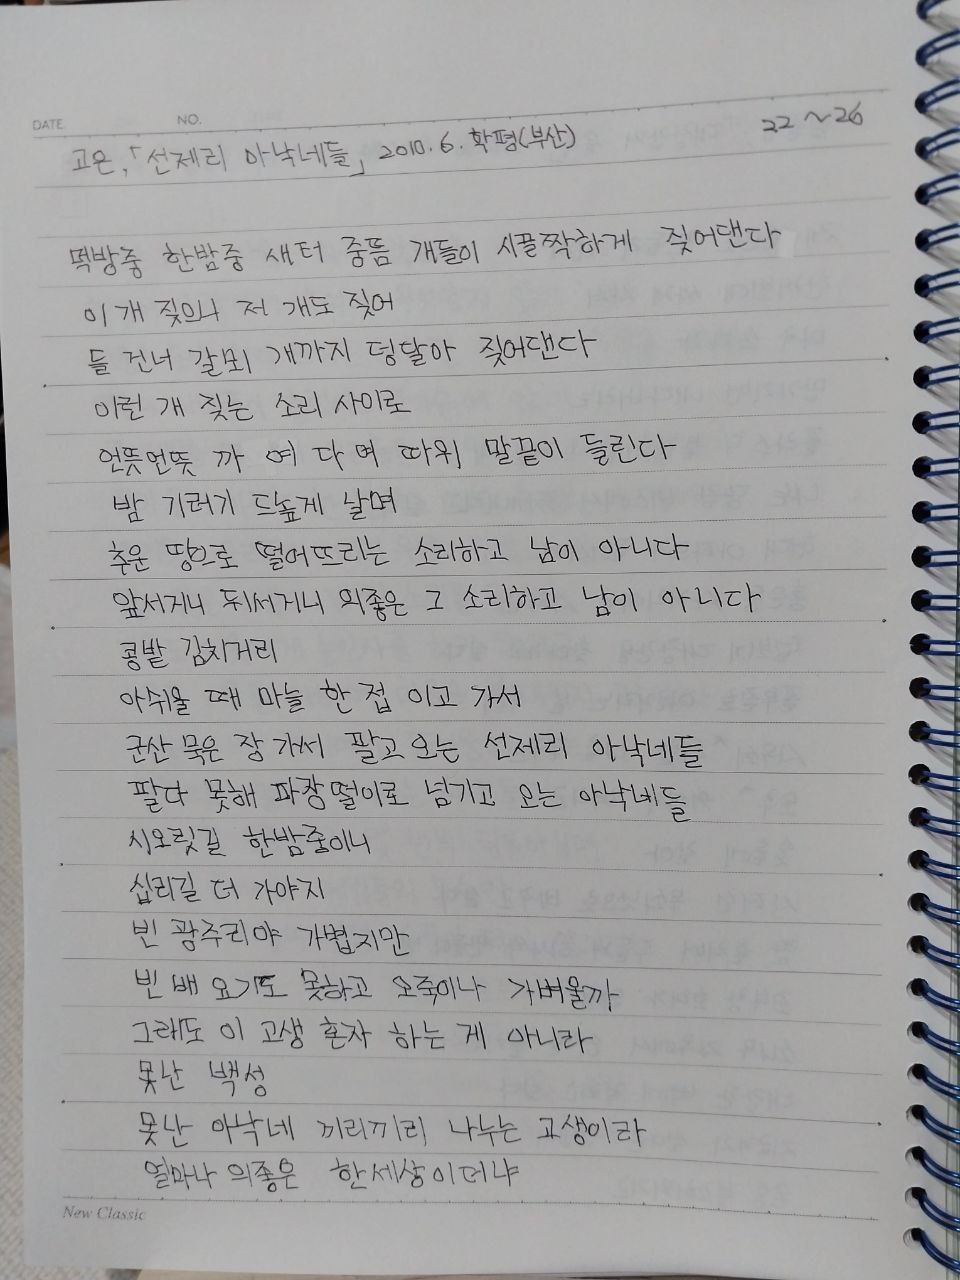 DATE
NO.
22 ~26
고은,「선제리 아낙네들」2010.6.학평(부산)
먹밤중 한밤중 새터 중뜸 개들이 시끌짝하게 짖어댄다
이 개 짖으니 저 개도 짖어
들 건너 갈뫼 개까지 덩달아 짖어댄다
이런 개 짖는 소리 사이로
언뜻언뜻 까 여 다 여 따위 말끝이 들린다
밤 기러기 드높게 날며
추운 땅으로 떨어뜨리는 소리하고 남이 아니다
앞서거니 뒤서거니 의좋은 그 소리하고 남이 아니다
콩밭 김치거리
아쉬울 때 마늘 한 접 이고 가서
군산 묵은 장 가서 팔고 오는 선제리 아낙네들
팔다 못해 파장떨이로 넘기고 오는 아낙네들
시오릿길 한밤중이니
십리길 더 가야지
빈 광주리야 가볍지만
빈 배 요기도 못하고 오죽이나 가벼울까
그래도 이 고생 혼자 하는 게 아니라
못난 백성
못난 아낙네 끼리끼리 나누는 고생이라
얼마나 의좋은 한세상이더냐
New Classic